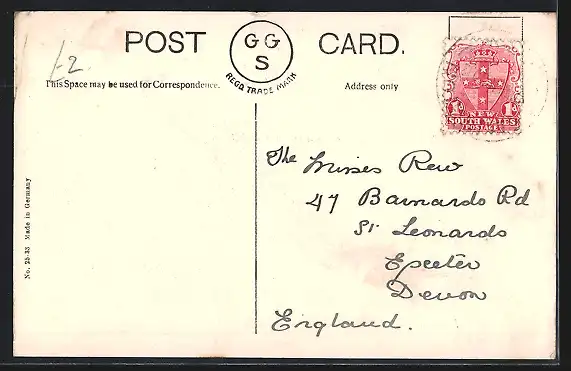 POST CARD.
GG
S
REGD TRADE MARK
£2
This Space may be used for Correspondence.
Address only
1D 1D
NEW
SOUTH WALES
POSTAGE
The Misses Rew
47 Barnardo Rd
St Leonards
Exeter
Devon
England.
No. 25-33 Made in Germany